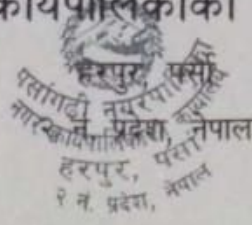 कार्यपालिकाको
हरपुर, पर्सा
२ नं. प्रदेश, नेपाल
पर्सागढी नगरपालिका
नगर कार्यपालिकाको कार्यालय
हरपुर, पर्सा
२ नं. प्रदेश, नेपाल